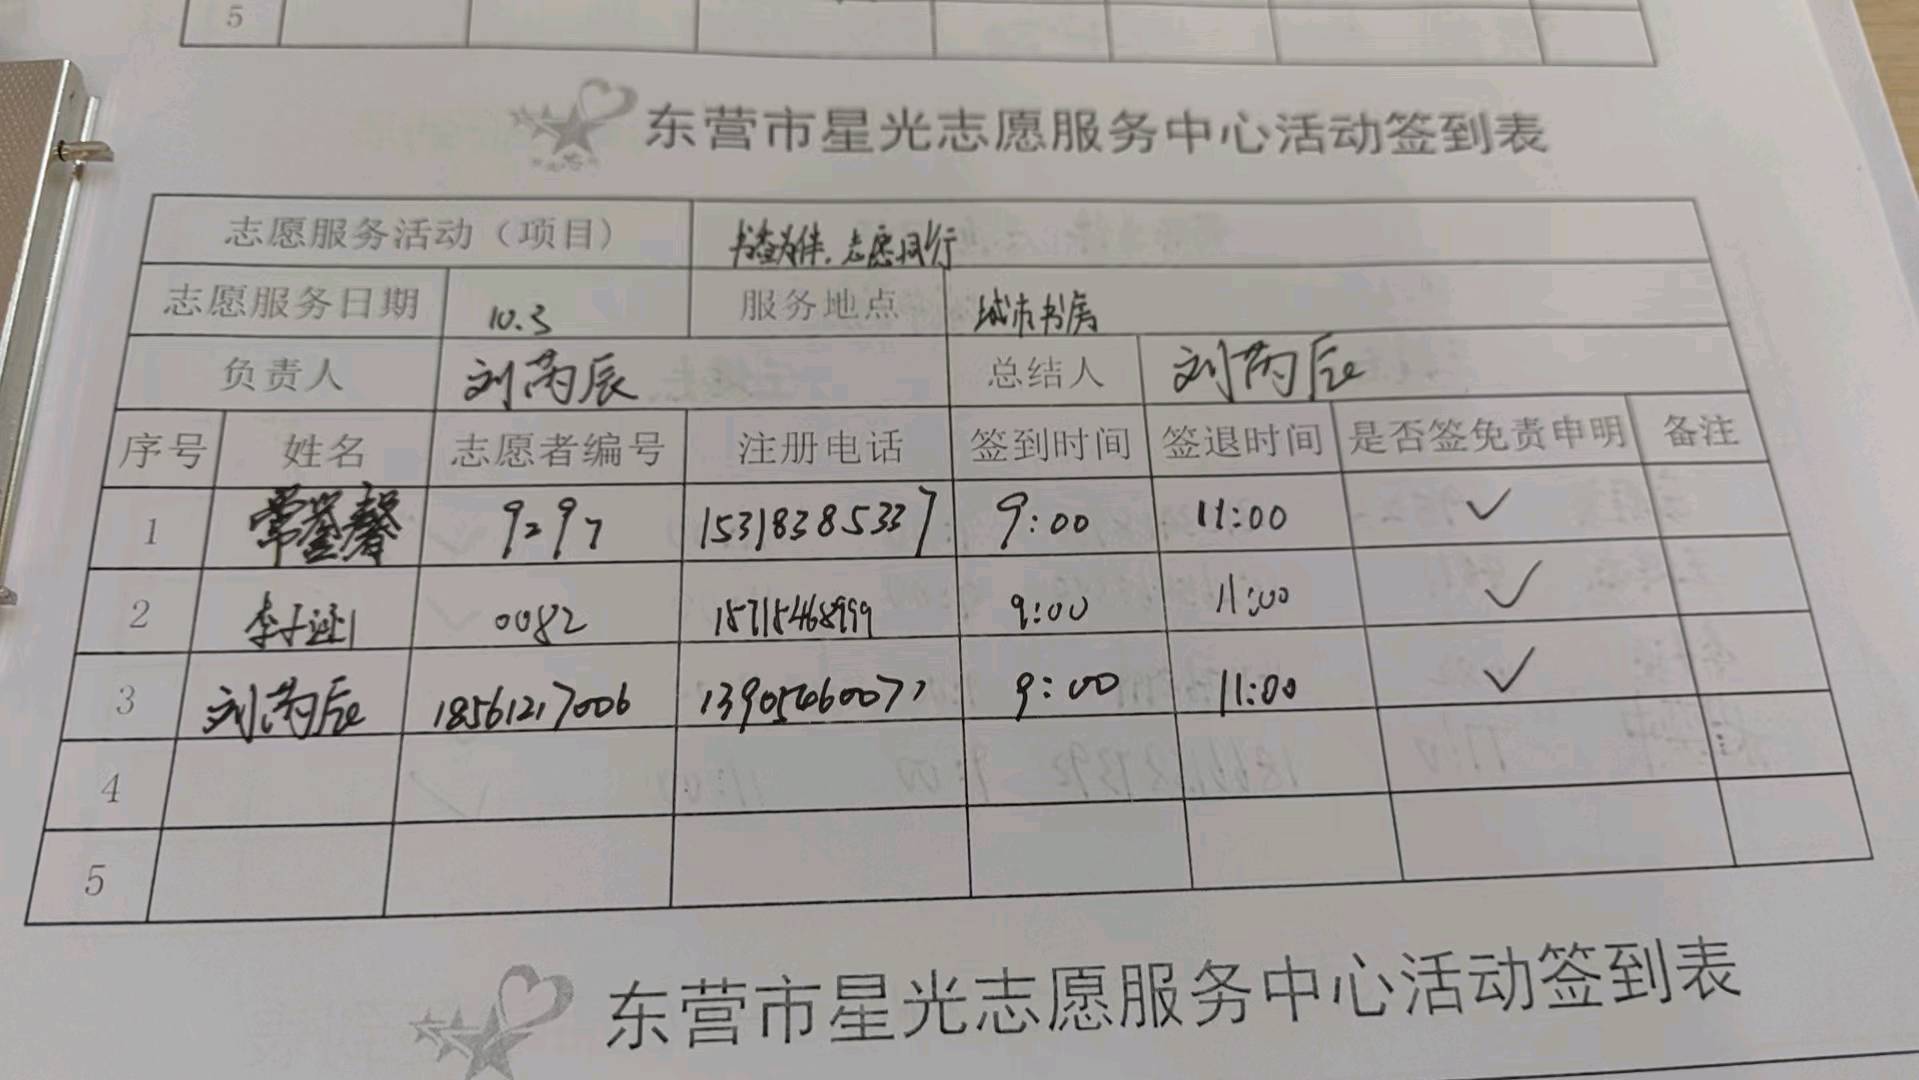 5
东营市星光志愿服务中心活动签到表
志愿服务活动（项目） 书香为伴，志愿同行
志愿服务日期 10.3 服务地点 城市书房
负责人 刘芮辰 总结人 刘芮辰
序号 姓名 志愿者编号 注册电话 签到时间 签退时间 是否签免责申明 备注
1 9297 15318385337 9:00 11:00 ✓
2 李子 0082 9:00 11:00 ✓
3 刘芮辰 18561217006 13905460077 9:00 11:00 ✓
4
5
东营市星光志愿服务中心活动签到表